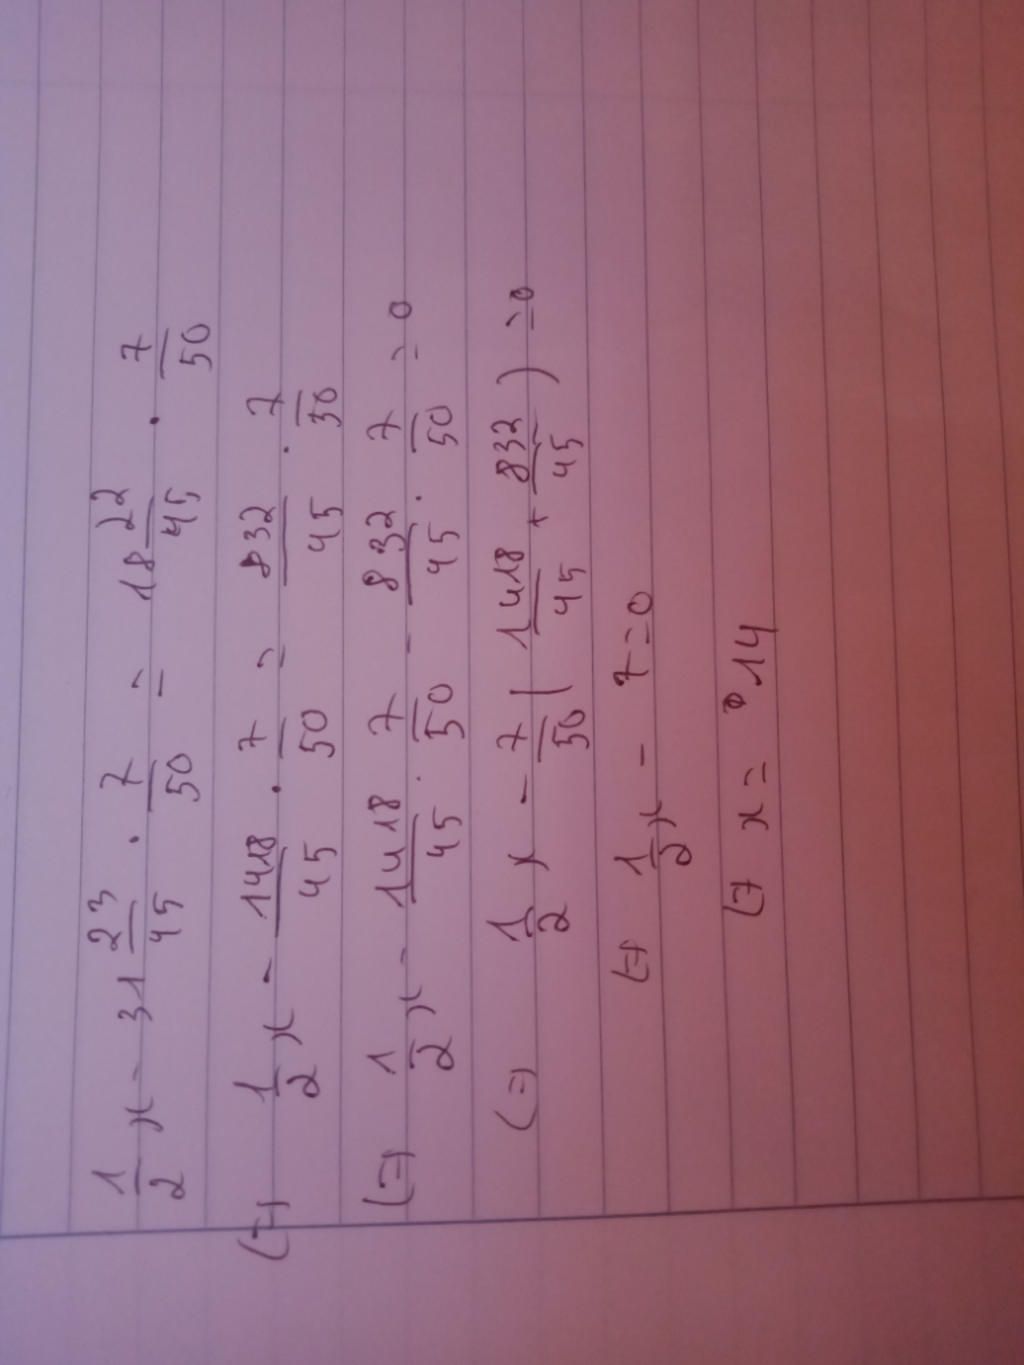 1/2 x - 31 23/45 . 7/50 = 18 22/45 . 7/50
(=) 1/2 x - 1418/45 . 7/50 = 832/45 . 7/50
(=) 1/2 x - 1418/45 . 7/50 - 832/45 . 7/50 = 0
(=) 1/2 x - 7/50 ( 1418/45 + 832/45 ) = 0
(=) 1/2 x - 7 = 0
(= x = 14